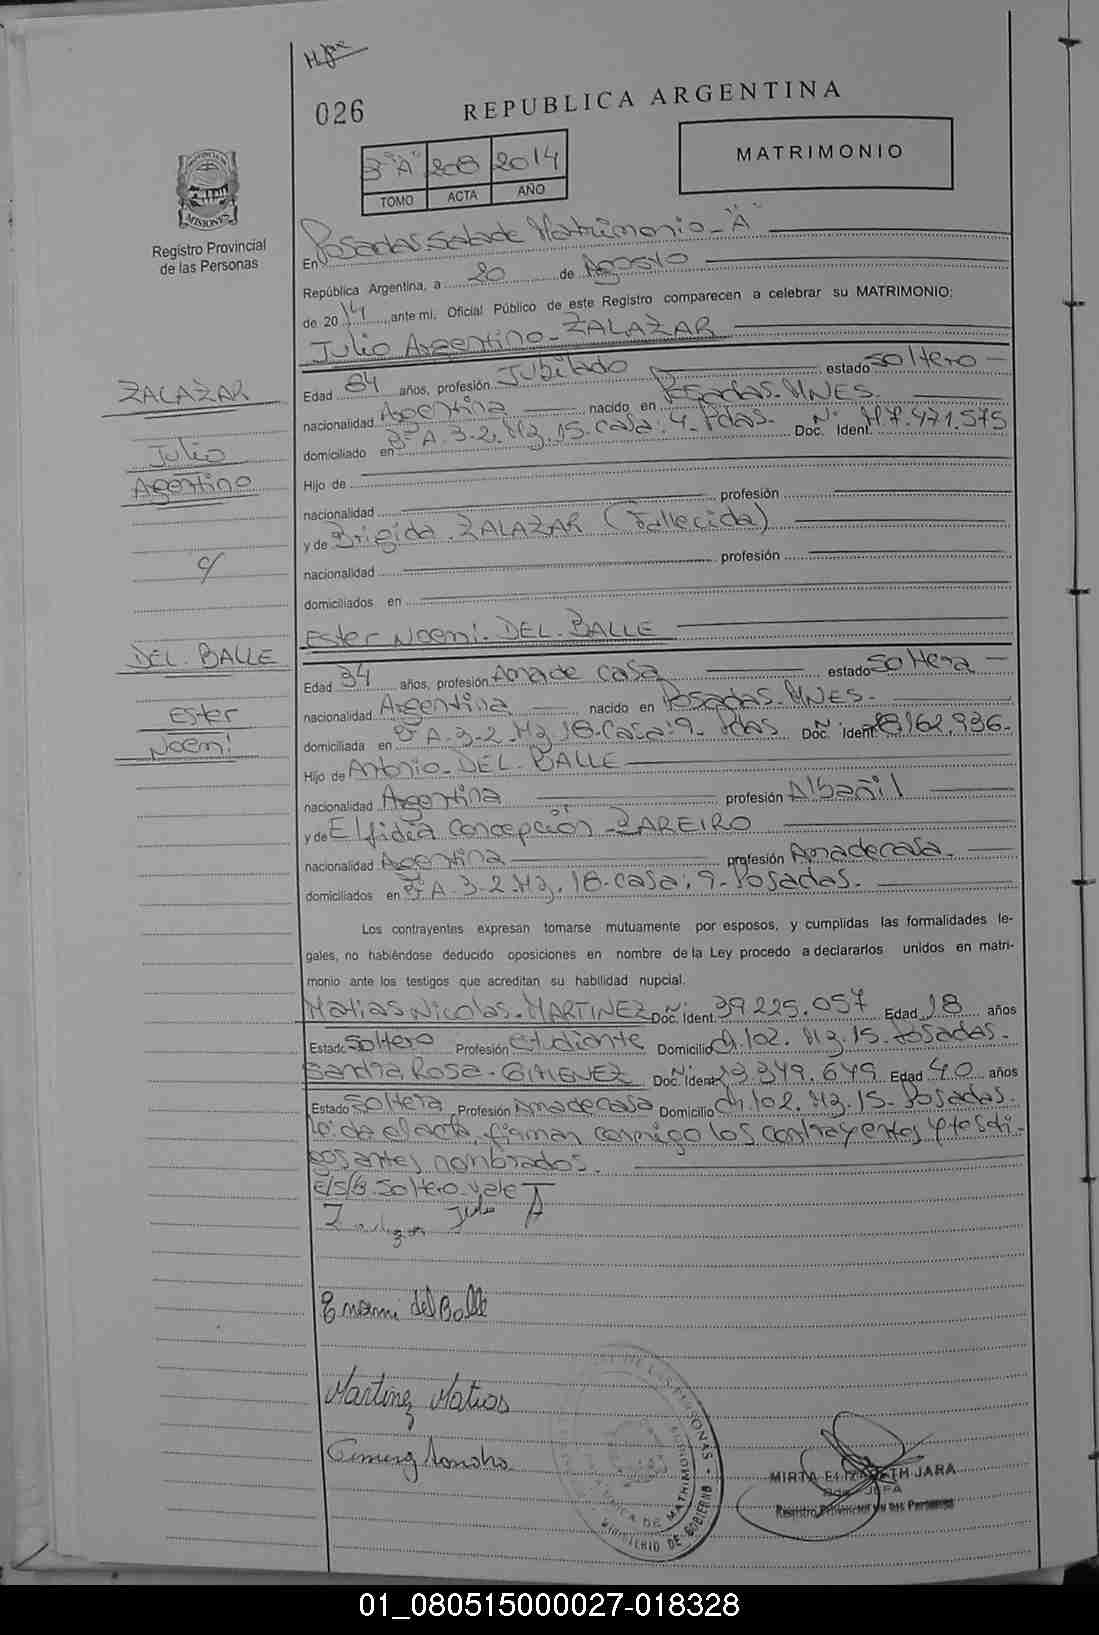 026
REPUBLICA ARGENTINA
MATRIMONIO
3º "A" 208 2014
TOMO ACTA AÑO
PROVINCIA DE MISIONES
Registro Provincial
de las Personas
En Posadas, Sala de Matrimonio - "A"
República Argentina, a 20 de Agosto
de 2014, ante mi, Oficial Público de este Registro comparecen a celebrar su MATRIMONIO:
Julio Argentino - ZALAZAR
Edad 84 años, profesión Jubilado estado soltero
nacionalidad Argentina nacido en Posadas. MNES.
domiciliado en A. 3-2. Mz. 15. casa: 4. Pdas. Doc. Nº Ident. M7.471.575
Hijo de
nacionalidad profesión
y de Brigida. ZALAZAR (Fallecida)
nacionalidad profesión
domiciliados en
Ester Noemi. DEL. BALLE
Edad 34 años, profesión Ama de casa estado soltera
nacionalidad Argentina nacido en Posadas. MNES.
domiciliada en A. 3-2. Mz. 18. Casa: 9. Pdas Doc. Nº Ident. 28.162.936.
Hijo de Antonio - DEL. BALLE
nacionalidad Argentina profesión Albañil
y de Elfidia Concepción -
nacionalidad Argentina profesión Ama de casa.
domiciliados en A. 3-2. Mz. 18. casa: 9. Posadas.
Los contrayentes expresan tomarse mutuamente por esposos, y cumplidas las formalidades le-
gales, no habiéndose deducido oposiciones en nombre de la Ley procedo a declararlos unidos en matri-
monio ante los testigos que acreditan su habilidad nupcial.
Matias Nicolas. MARTINEZ Doc. Nº Ident. 39.225.057 Edad 18 años
Estado soltero Profesión estudiante Domicilio Ch. 102. Mz. 15. Posadas.
Sandra Rosa. GIMENEZ Doc. Nº Ident. 23.349.649 Edad 40 años
Estado soltera Profesión Ama de casa Domicilio Ch. 102. Mz. 15. Posadas.
leída el acta, firman conmigo los contrayentes y testi-
gos antes nombrados.
E/S/B. Soltero. Vale
Zalazar Julio A
E noemi del Balle
Martinez Matias
Gimenez Sandra
MIRTA ELIZABETH JARA
JEFA
Registro Provincial de las Personas
ZALAZAR
Julio
Argentino
c/
DEL. BALLE
Ester
Noemi
01_080515000027-018328